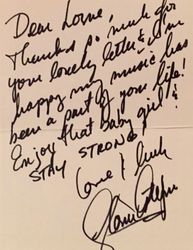 Dear Lorne,
Thanks so much for
your lovely letter & I'm
happy my music has
been a part of your life!
Enjoy that baby girl &
STAY STRONG!
Love & luck
Gloria Estefan